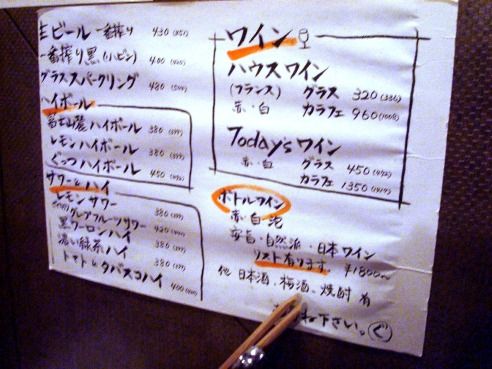 生ビール 一番搾り 430 (451)
一番搾り黒 (小ビン) 400 (420)
グラス スパークリング 480 (504)
ハイボール
富士山麓ハイボール 380 (399)
レモンハイボール 380 (399)
ぐっつハイボール 450
サワー & ハイ
レモンサワー 380 (399)
グレープフルーツサワー 420
黒ウーロンハイ 380 (399)
濃い緑茶ハイ 380 (399)
トマト&タバスコハイ 400 (420)
ワイン
ハウスワイン
(フランス) グラス 320 (336)
赤・白 カラフェ 960 (1008)
Today's ワイン
赤・白 グラス 450 (472)
カラフェ 1350
ボトルワイン
赤・白・泡
安旨・自然派・日本ワイン
リスト有ります。 ¥1800〜
他 日本酒、梅酒、焼酎 有
ね下さい。ぐ